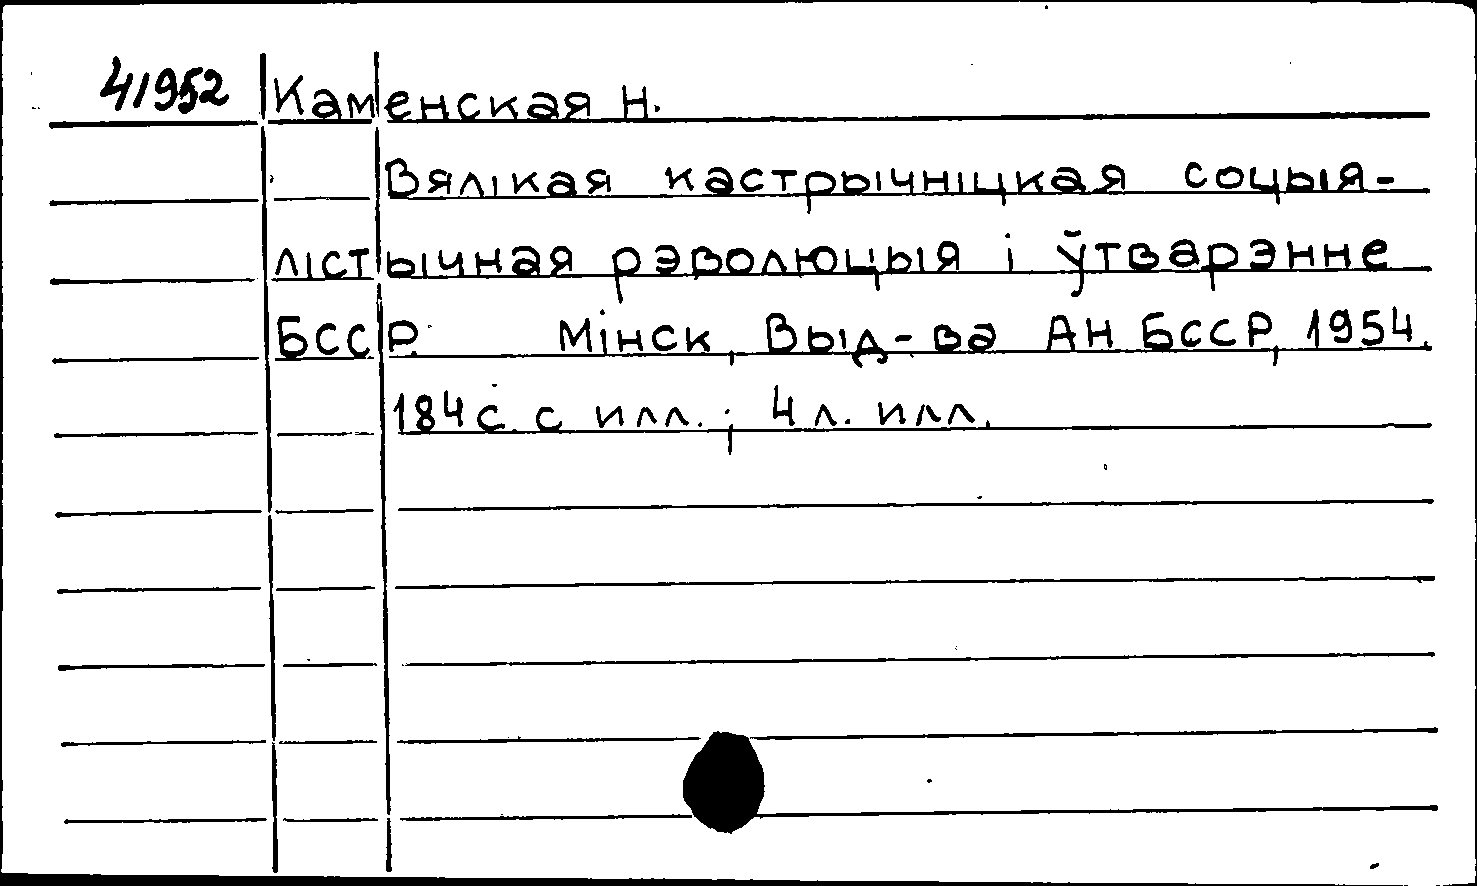 41952 Каменская Н.
Вялікая кастрычніцкая соцыя-
лістычная рэволюцыя і ўтварэнне
БССР. Мінск, Выд-ва АН БССР, 1954.
184 с. с илл.; 4 л. илл.